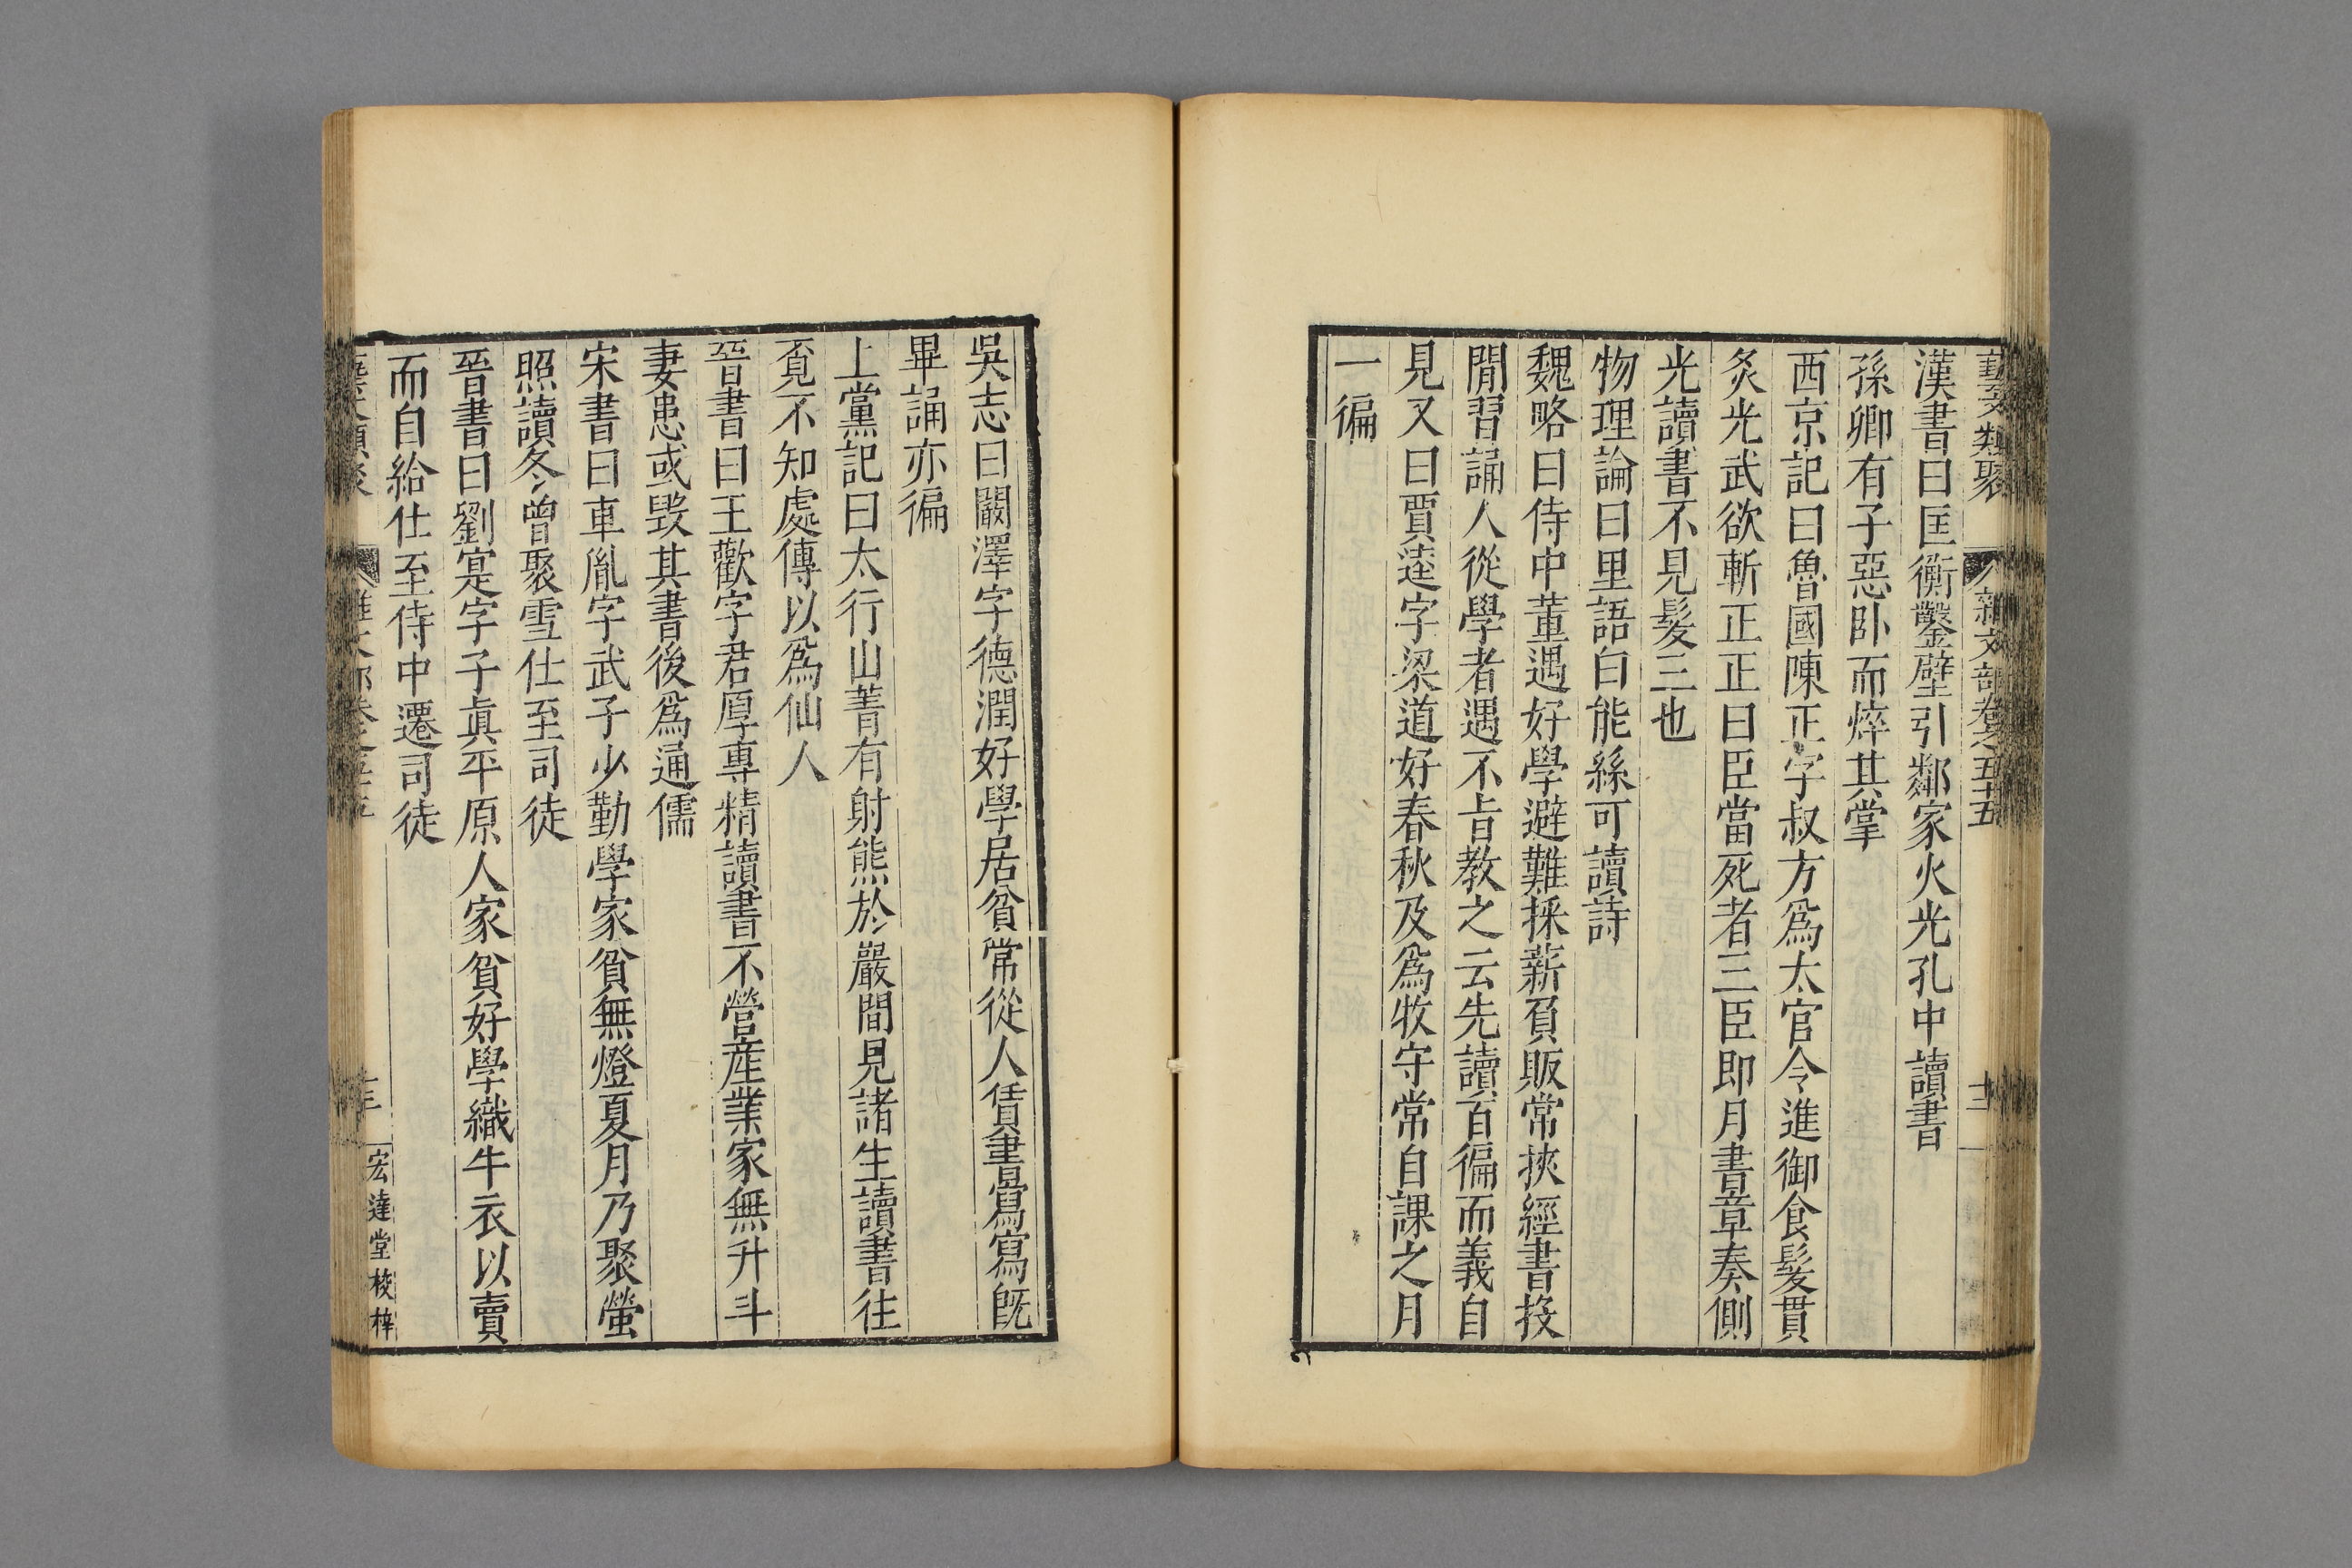 藝文類聚 雜文部卷之五十五 十二
漢書曰匡衡鑿壁引鄰家火光孔中讀書
孫卿有子惡卧而焠其掌
西京記曰魯國陳正字叔方爲太官令進御食髮貫
炙光武欲斬正正曰臣當死者三臣即月書章奏側
光讀書不見髮三也
物理論曰里語曰能絲可讀詩
魏略曰侍中董遇好學避難採薪負販常挾經書投
閒習誦人從學者遇不肯教之云先讀百徧而義自
見又曰賈逵字梁道好春秋及爲牧守常自課之月
一徧
吳志曰闞澤字德潤好學居貧常從人賃書寫寫旣
畢誦亦徧
上黨記曰太行山菁有射熊於巖間見諸生讀書往
覔不知處傳以爲仙人
晉書曰王歡字君厚專精讀書不營産業家無升斗
妻患或毁其書後爲通儒
宋書曰車胤字武子少勤學家貧無燈夏月乃聚螢
照讀冬曾聚雪仕至司徒
晉書曰劉寔字子眞平原人家貧好學織牛衣以賣
而自給仕至侍中遷司徒
宏達堂校梓